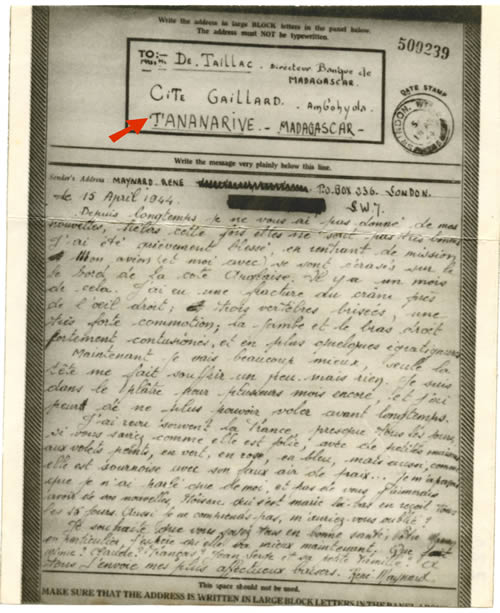 Write the address in large BLOCK letters in the panel below.
The address must NOT be typewritten.
509239
TO:-
DE. TAILLAC. Directeur Banque de
MADAGASCAR.
CITE GAILLARD. Ambohyda.
TANANARIVE. - MADAGASCAR -
DATE STAMP
Write the message very plainly below this line.
Sender's Address MAYNARD. RENÉ P.O. BOX 236. LONDON.
SW7.
Le 15 April 1944.
Depuis longtemps je ne vous ai pas donné de mes
nouvelles, hélas cette fois elles ne sont pas très bonnes
J'ai été grièvement blessé, en rentrant de mission
Mon avion (et moi avec) se sont écrasés sur le
le bord de la cote Anglaise. Il y a un mois
de cela. J'ai eu une fracture du crâne près
de l'oeil droit; trois vertèbres brisées, une
très forte commotion; la jambe et le bras droit
fortement contusionés, et en plus quelques égratignures
Maintenant je vais beaucoup mieux, seule la
tête me fait souffrir un peu mais rien. Je suis
dans le plâtre pour plusieurs mois encore, et j'ai
peur de ne plus pouvoir voler avant longtemps.
J'ai revu souvent la France, presque tous les jours,
si vous saviez comme elle est jolie, avec de petites maisons
aux volets peints, en vert, en rose, en bleu, mais aussi, comme
elle est sournoise avec son faux air de paix... Je m'aperçois
que je n'ai parlé que de moi, et pas de vous. J'aimerais
avoir de vos nouvelles, qui s'est marié là-bas en reçoit tous
les 15 jours. Aussi je ne comprends pas, m'auriez-vous oublié?
Je souhaite que vous soyez tous en bonne santé,
en particulier, j'espère qu'elle va mieux maintenant. Que fait
Claude? François? Jean, et sa petite famille? A
tous j'envoie mes plus affectueux baisers. René Maynard.
This space should not be used.
MAKE SURE THAT THE ADDRESS IS WRITTEN IN LARGE BLOCK LETTERS IN THE PANEL